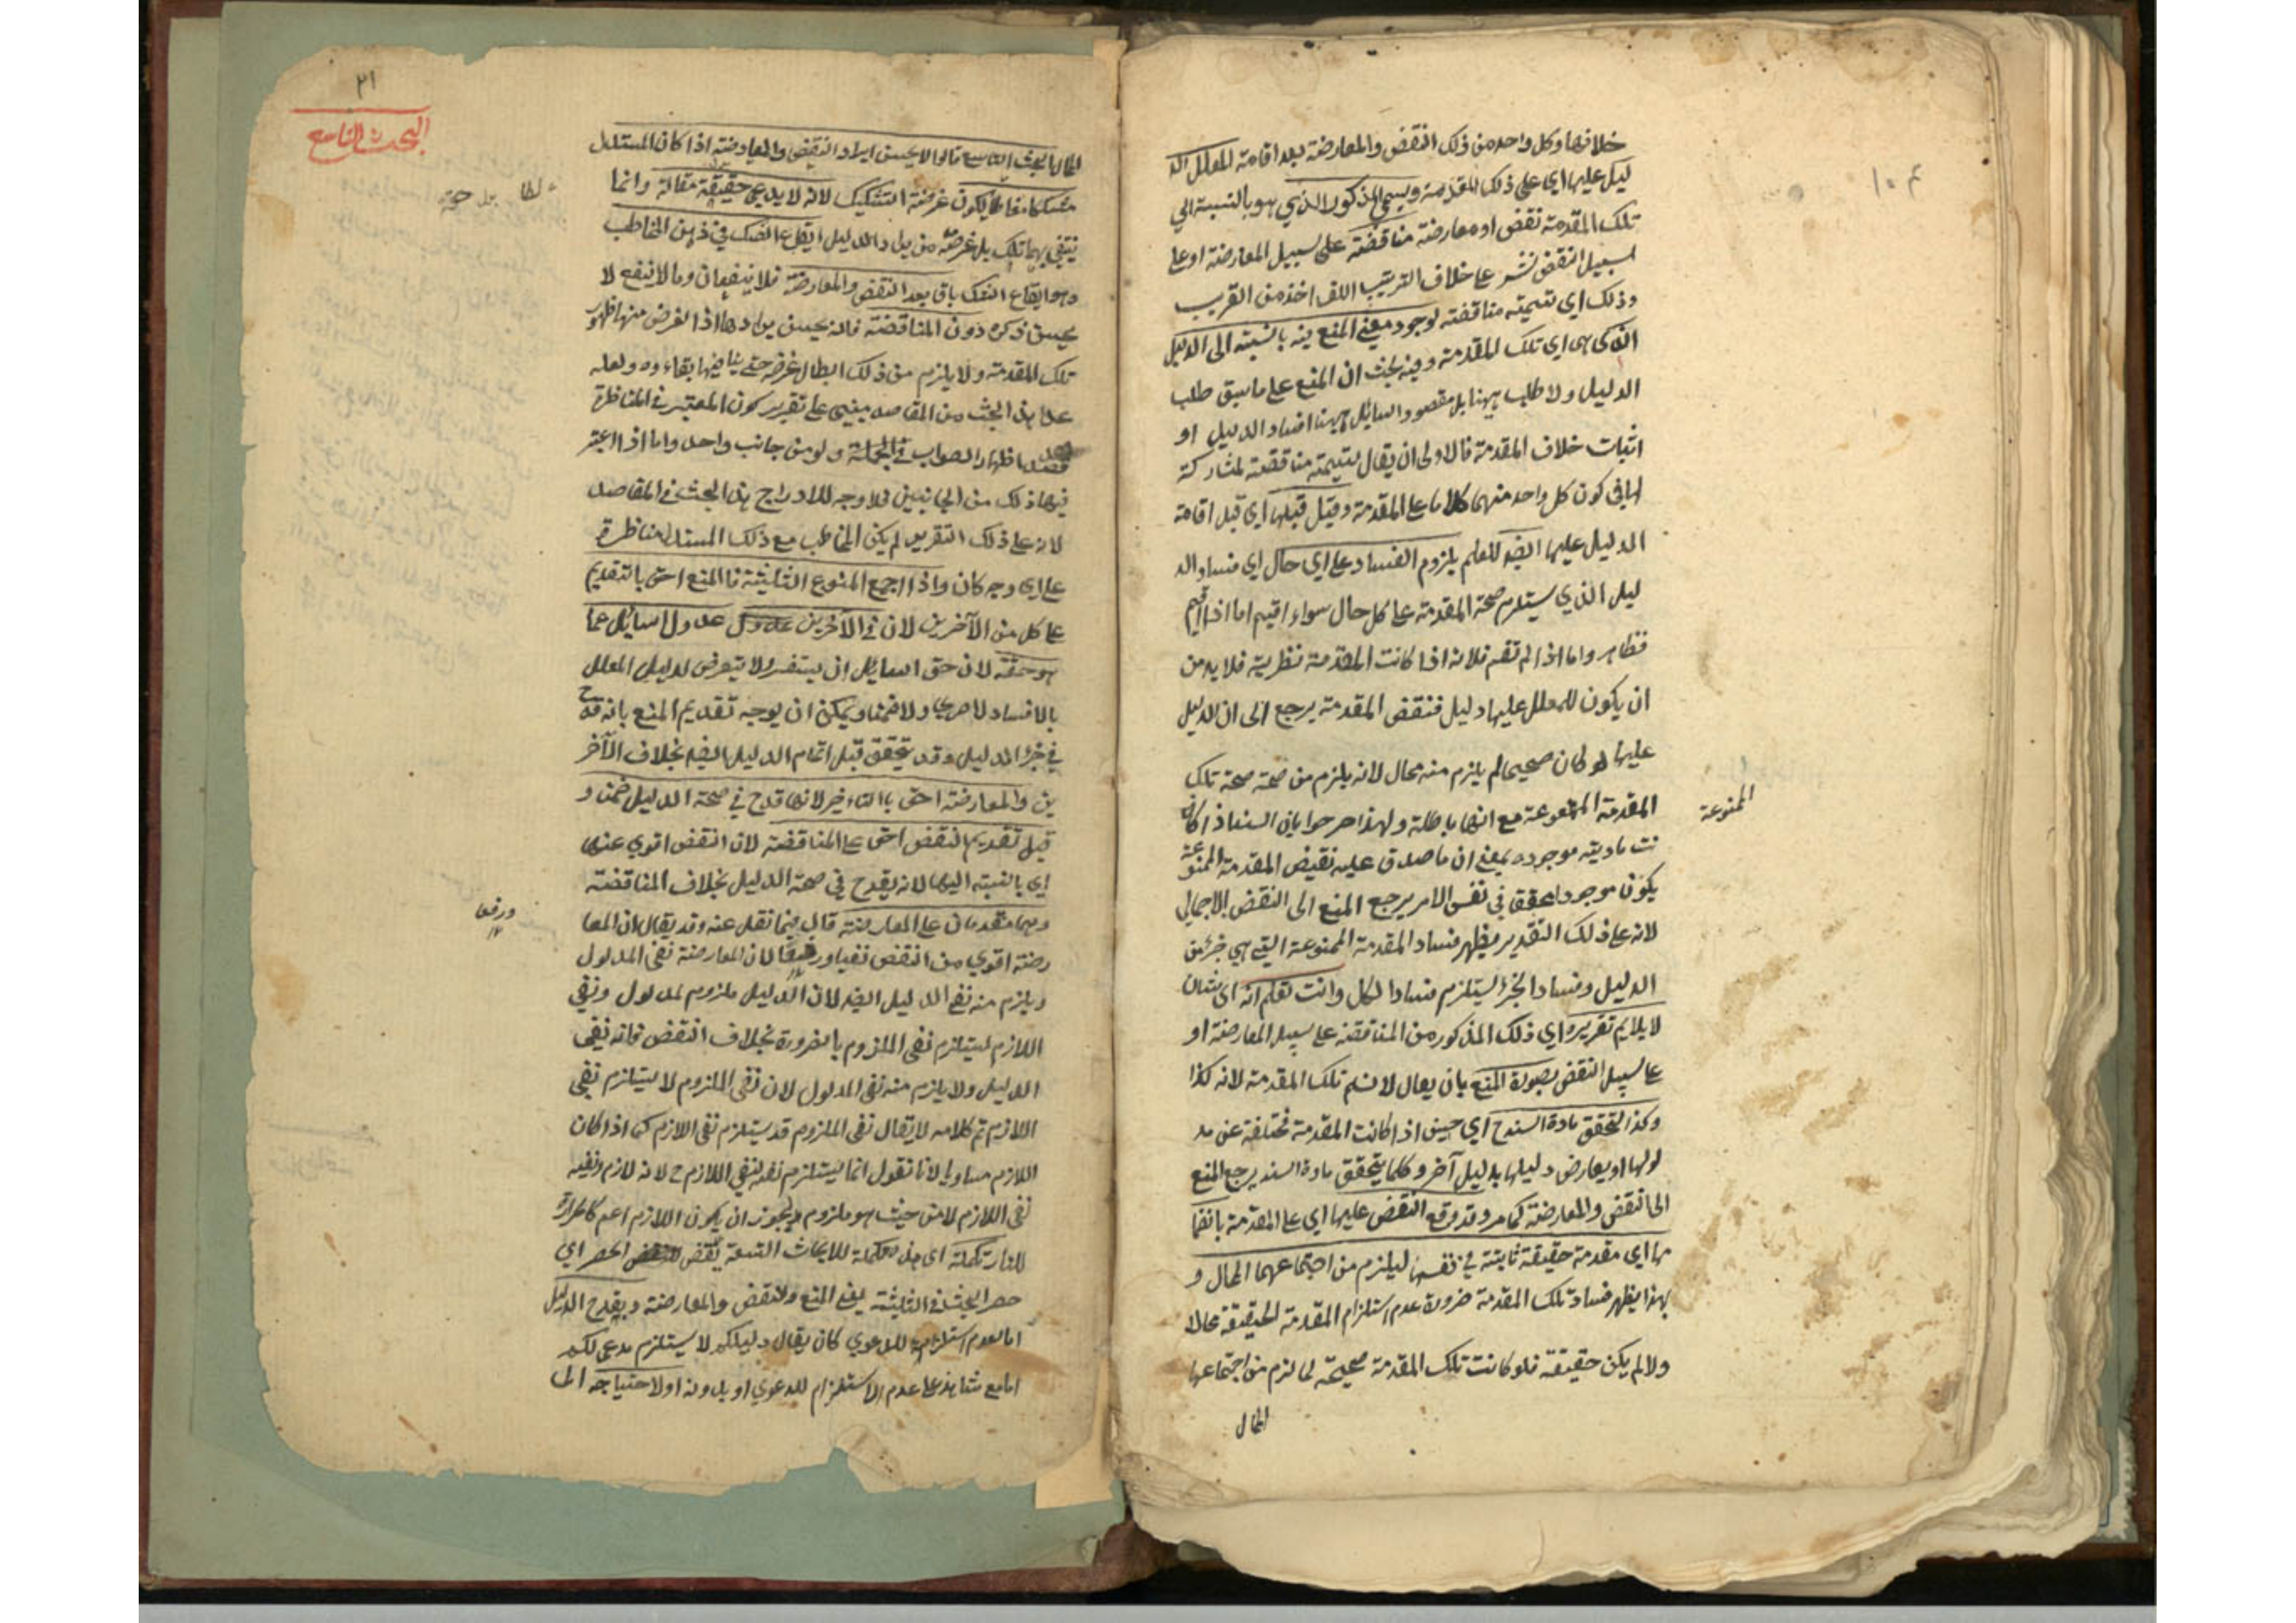 خلافها وكل واحد من ذلك النقض والمعارضة بعد اقامة المعلل الد
ليل عليها اي على ذلك المقدمة ويسمى المذكور الذي هو بالنسبة الي
تلك المقدمة نقض او معارضة مناقضة على سبيل المعارضة او على
سبيل النقض نشر على خلاف الترتيب اللف اخذ من القريب
وذلك اي تسميته مناقضة لوجود معنى المنع فيه بالنسبة الى الدليل
الذي هي اي تلك المقدمة وفيه بحث ان المنع على ما سبق طلب
الدليل ولا طلب ههنا بل مقصود السائل ههنا افساد الدليل او
اثبات خلاف المقدمة فالاولى ان يقال تسميته مناقضة لمشاركة
لها في كون كل واحد منهما كلاما على المقدمة وقيل قبلها اي قبل اقامة
الدليل عليها ايضا للعلم بلزوم الفساد على اي حال اي فساد الد
ليل الذي يستلزم صحة المقدمة على كل حال سواء اقيم اما اذا اقيم
فظاهر واما اذا لم تقم فلانه اذا كانت المقدمة نظرية فلا بد من
ان يكون للمعلل عليها دليل فنقض المقدمة يرجع الى ان الدليل
عليها لو كان صحيحا لم يلزم منه محال لانه يلزم من صحة صحة تلك
المقدمة الممنوعة مع انها باطلة ولهذا صرحوا بان السند اذا كا
نت مادته موجودة بمعنى ان ما صدق عليه نقيض المقدمة الممنوعة
يكون موجودا محققا في نفس الامر يرجع المنع الى النقض الاجمالي
لانه على ذلك التقدير يظهر فساد المقدمة الممنوعة التي هي جزء من
الدليل وفساد الجزء يستلزم فساد الكل وانت تعلم انه اي الشان
لا يلايم تقريره اي ذلك المذكور من المناقضة على سبيل المعارضة او
على سبيل النقض بصورة المنع بان يقال لا نسلم تلك المقدمة لانه كذا
وكذا لتحقق مادة السند ح اي حين اذا كانت المقدمة مختلفة عن مد
لولها او يعارض دليلها بدليل آخر وكلما يتحقق مادة السند يرجع المنع
الى النقض والمعارضة كما مر وقد وقع النقض عليها اي على المقدمة بانضما
مها اي مقدمة حقيقة ثابتة في نفسها ليلزم من اجتماعهما المحال و
بهذا يظهر فساد تلك المقدمة ضرورة عدم استلزام المقدمة الحقيقة محالا
ولا لم يكن حقيقة فلو كانت تلك المقدمة صحيحة لما لزم من اجتماعها
المحال
الممنوعة
١٠٤
٢١
البحث التاسع
المحال البحث التاسع قالوا لا يحسن ايراد النقض والمعارضة اذا كان المستدل
مشككا مغالطا يكون غرضه التشكيك لانه لا يدعي حقيقة مقاله وانما
ينتفي بهما تلك بل غرضه من ايراد الدليل ايقاع الشك في ذهن المخاطب
وهو ايقاع الشك باق بعد النقض والمعارضة فلا ينفعان وما لا ينفع لا
يحسن ذكره دون المناقضة فانه يحسن ايرادها اذا الغرض منها ظهور
تلك المقدمة ولا يلزم من ذلك ابطال غرضه حتى ينافيها بقاءه ولعله
عد هذا البحث من المقاصد مبني على تقرير كون المعتبر في المناظرة
قصد اظهار الصواب في الجملة ولو من جانب واحد واما اذا اعتبر
فيها ذلك من الجانبين فلا وجه للادراج هذا البحث في المقاصد
لانه على ذلك التقرير لم يكن المخاطب مع ذلك المستدل مناظرة
على اي وجه كان واذا اجمع المنوع الثلثة فالمنع احق بالتقديم
على كل من الآخرين لان في الآخرين عدول السائل عما
هو حقه لان حق السائل ان يستفسر ولا يتعرض لدليل المعلل
بالافساد لا صريحا ولا ضمنا ويمكن ان يوجه تقديم المنع بانه قدح
في جزء الدليل وقد تحقق قبل اتمام الدليل ايضا بخلاف الآخر
ين والمعارضة احق بالتاخير لانها قدح في صحة الدليل ضمنا و
قيل تقديم النقض احق على المناقضة لان النقض اقوي عنها
اي بالنسبة اليها لانه يقدح في صحة الدليل بخلاف المناقضة
وهما متقدمان على المعارضة قال فيما نقل عنه وقد يقال ان المعا
رضة اقوي من النقض نفيا ورفعا لان المعارضة نفي المدلول
ويلزم منه نفي الدليل ايضا لان الدليل ملزوم لمدلول ونفي
اللازم يستلزم نفي الملزوم بالضرورة بخلاف النقض فانه نفي
الدليل ولا يلزم منه نفي المدلول لان نفي الملزوم لا يستلزم نفي
اللازم تم كلامه لا يقال نفي الملزوم قد يستلزم نفي اللازم كما اذا كان
اللازم مساويا لانا نقول انما يستلزم نفيه لنفي اللازم ح لانه لازم ونفيه
نفي اللازم لا من حيث هو ملزوم ويجوز ان يكون اللازم اعم كالحرارة
للنار تكملة اي هذه تكملة للابحاث التسعة نقض الحصر اي
حصر البحث في الثلثة يعني المنع والنقض والمعارضة ويقدح الدليل
اما بعدم استلزامه للدعوي كان يقال دليلكم لا يستلزم مدعى لكم
اما مع شاهد على عدم الاستلزام للدعوي او بدونه او لاحتياجه الى
ورفعا